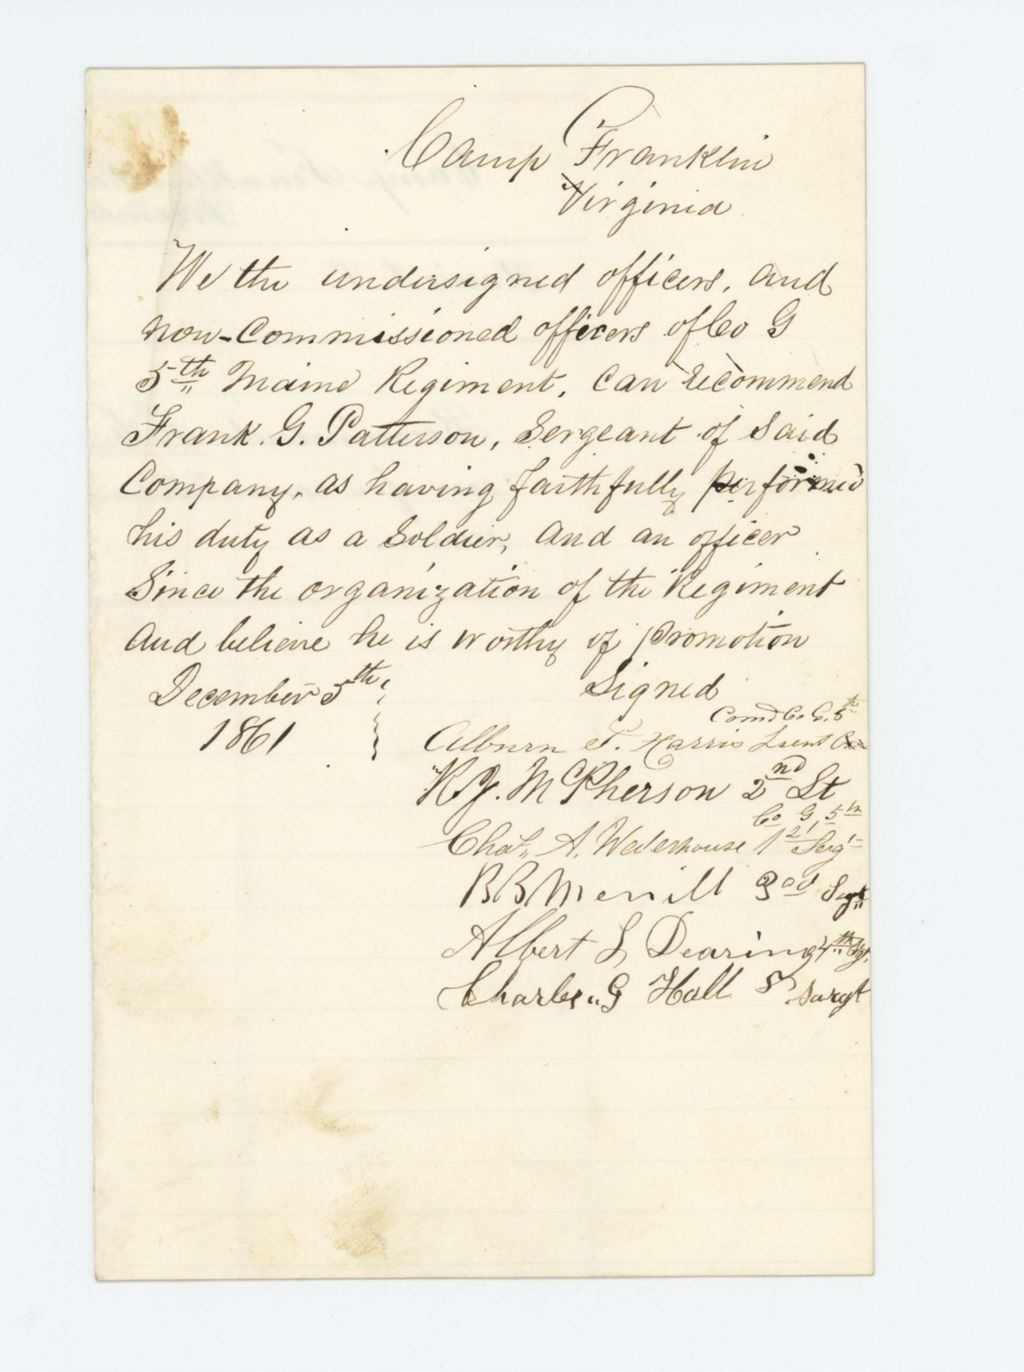 Camp Franklin
Virginia
We the undersigned officers, and
non-Commissioned officers of Co G
5th Maine Regiment, can recommend
Frank. G. Patterson, Sergeant of Said
Company, as having faithfully performed
his duty as a Soldier, and an officer
Since the organization of the Regiment
And believe he is worthy of promotion
December 5th
1861
Signed
Comd Co G. 5th
Alburn P. Harris Lieut
R. J. McPherson 2nd Lt
Co G, 5th
Chas. A. Waterhouse 1st Sergt
B B Merrill 3rd Sergt
Albert L Dearing 4th Sgt.
Charles G Hall 5 Sargt